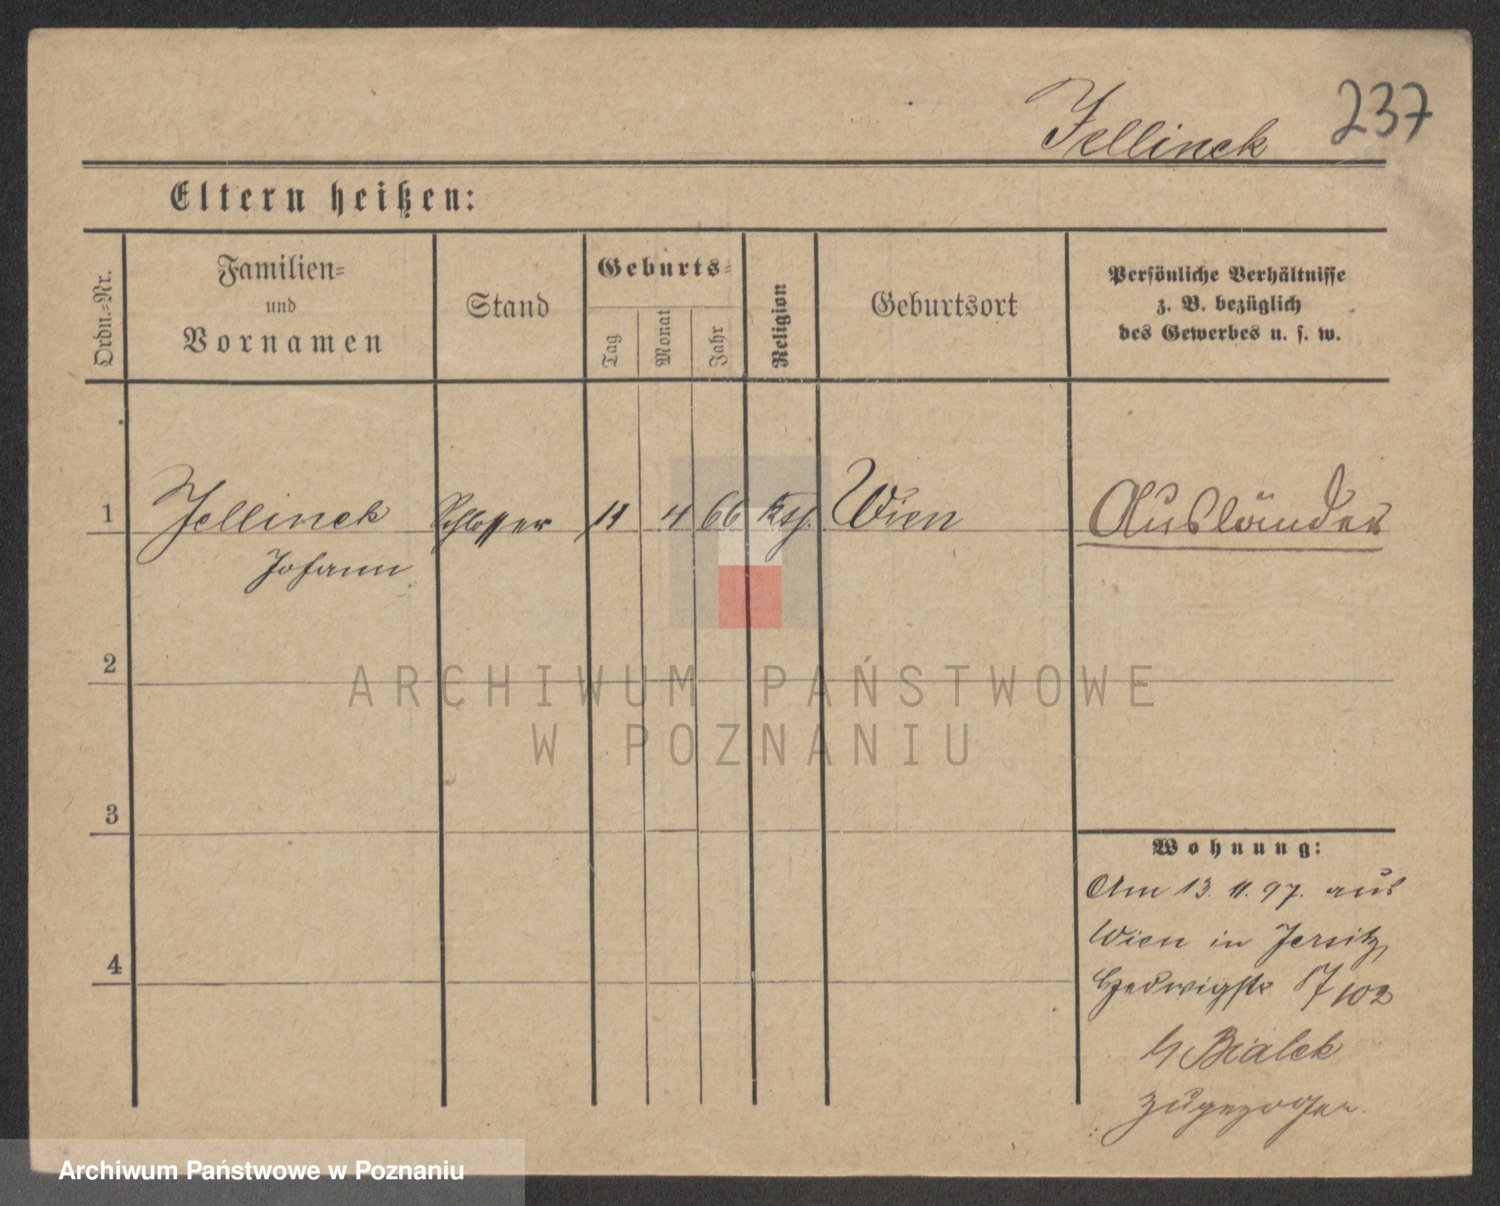 237
Jellinek
Eltern heißen:
Ordn.-Nr.
Familien-
und
Vornamen
Stand
Geburts-
Tag
Monat
Jahr
Religion
Geburtsort
Persönliche Verhältnisse
z. B. bezüglich
des Gewerbes u. s. w.
1
Jellinek
Johann
Schlosser
11
4
66
kth.
Wien
Ausländer
2
ARCHIWUM PAŃSTWOWE
W POZNANIU
3
4
Wohnung:
Am 13.11.97. aus
Wien in Jersitz
Hedwigstr 102
b/ Bialek
zugezogen
Archiwum Państwowe w Poznaniu